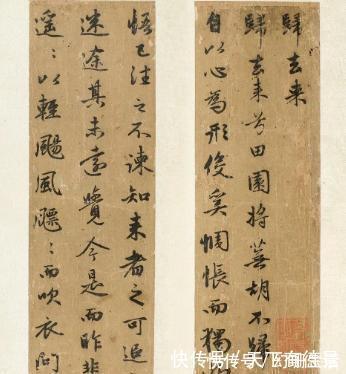 歸去来
歸去来兮田園将蕪胡不歸
自以心為形役奚惆悵而獨
悟已往之不諫知来者之可追
迷途其未遠覺今是而昨非
遥〻以輕颺風飄〻而吹衣問